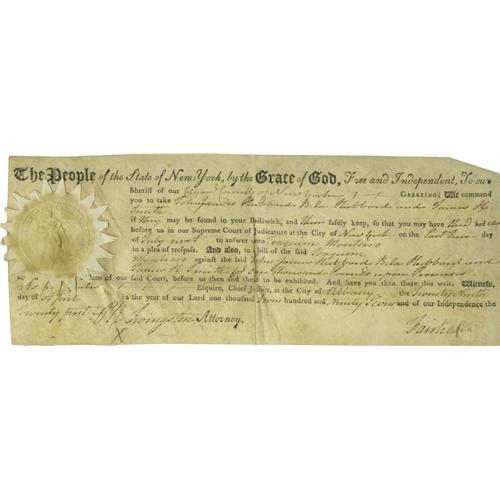 The People of the State of New York, by the Grace of God, Free and Independent, To our
Sheriff of our City and County of New York GREETING: We command
you to take Hubbard Bela Hubbard and James H
Smith
if they may be found in your Bailiwick, and them safely keep, so that you may have their
before us in our Supreme Court of Judicature at the City of New York on the last day
of July next to answer unto Joaquim Monteiro
in a plea of trespass. And also, to bill of the said Joaquim
Monteiro against the said Hubbard Bela Hubbard and
James H Smith for One Thousand Pounds upon Promises
custom of our said Court, before us then and there to be exhibited. And have you then there this writ. Witness,
Esquire, Chief Justice, at the City of Albany the Twenty Ninth
day of April in the year of our Lord one thousand seven hundred and Ninety and of our Independence the
Twenty first Livingston Attorney.
Fairlie
X